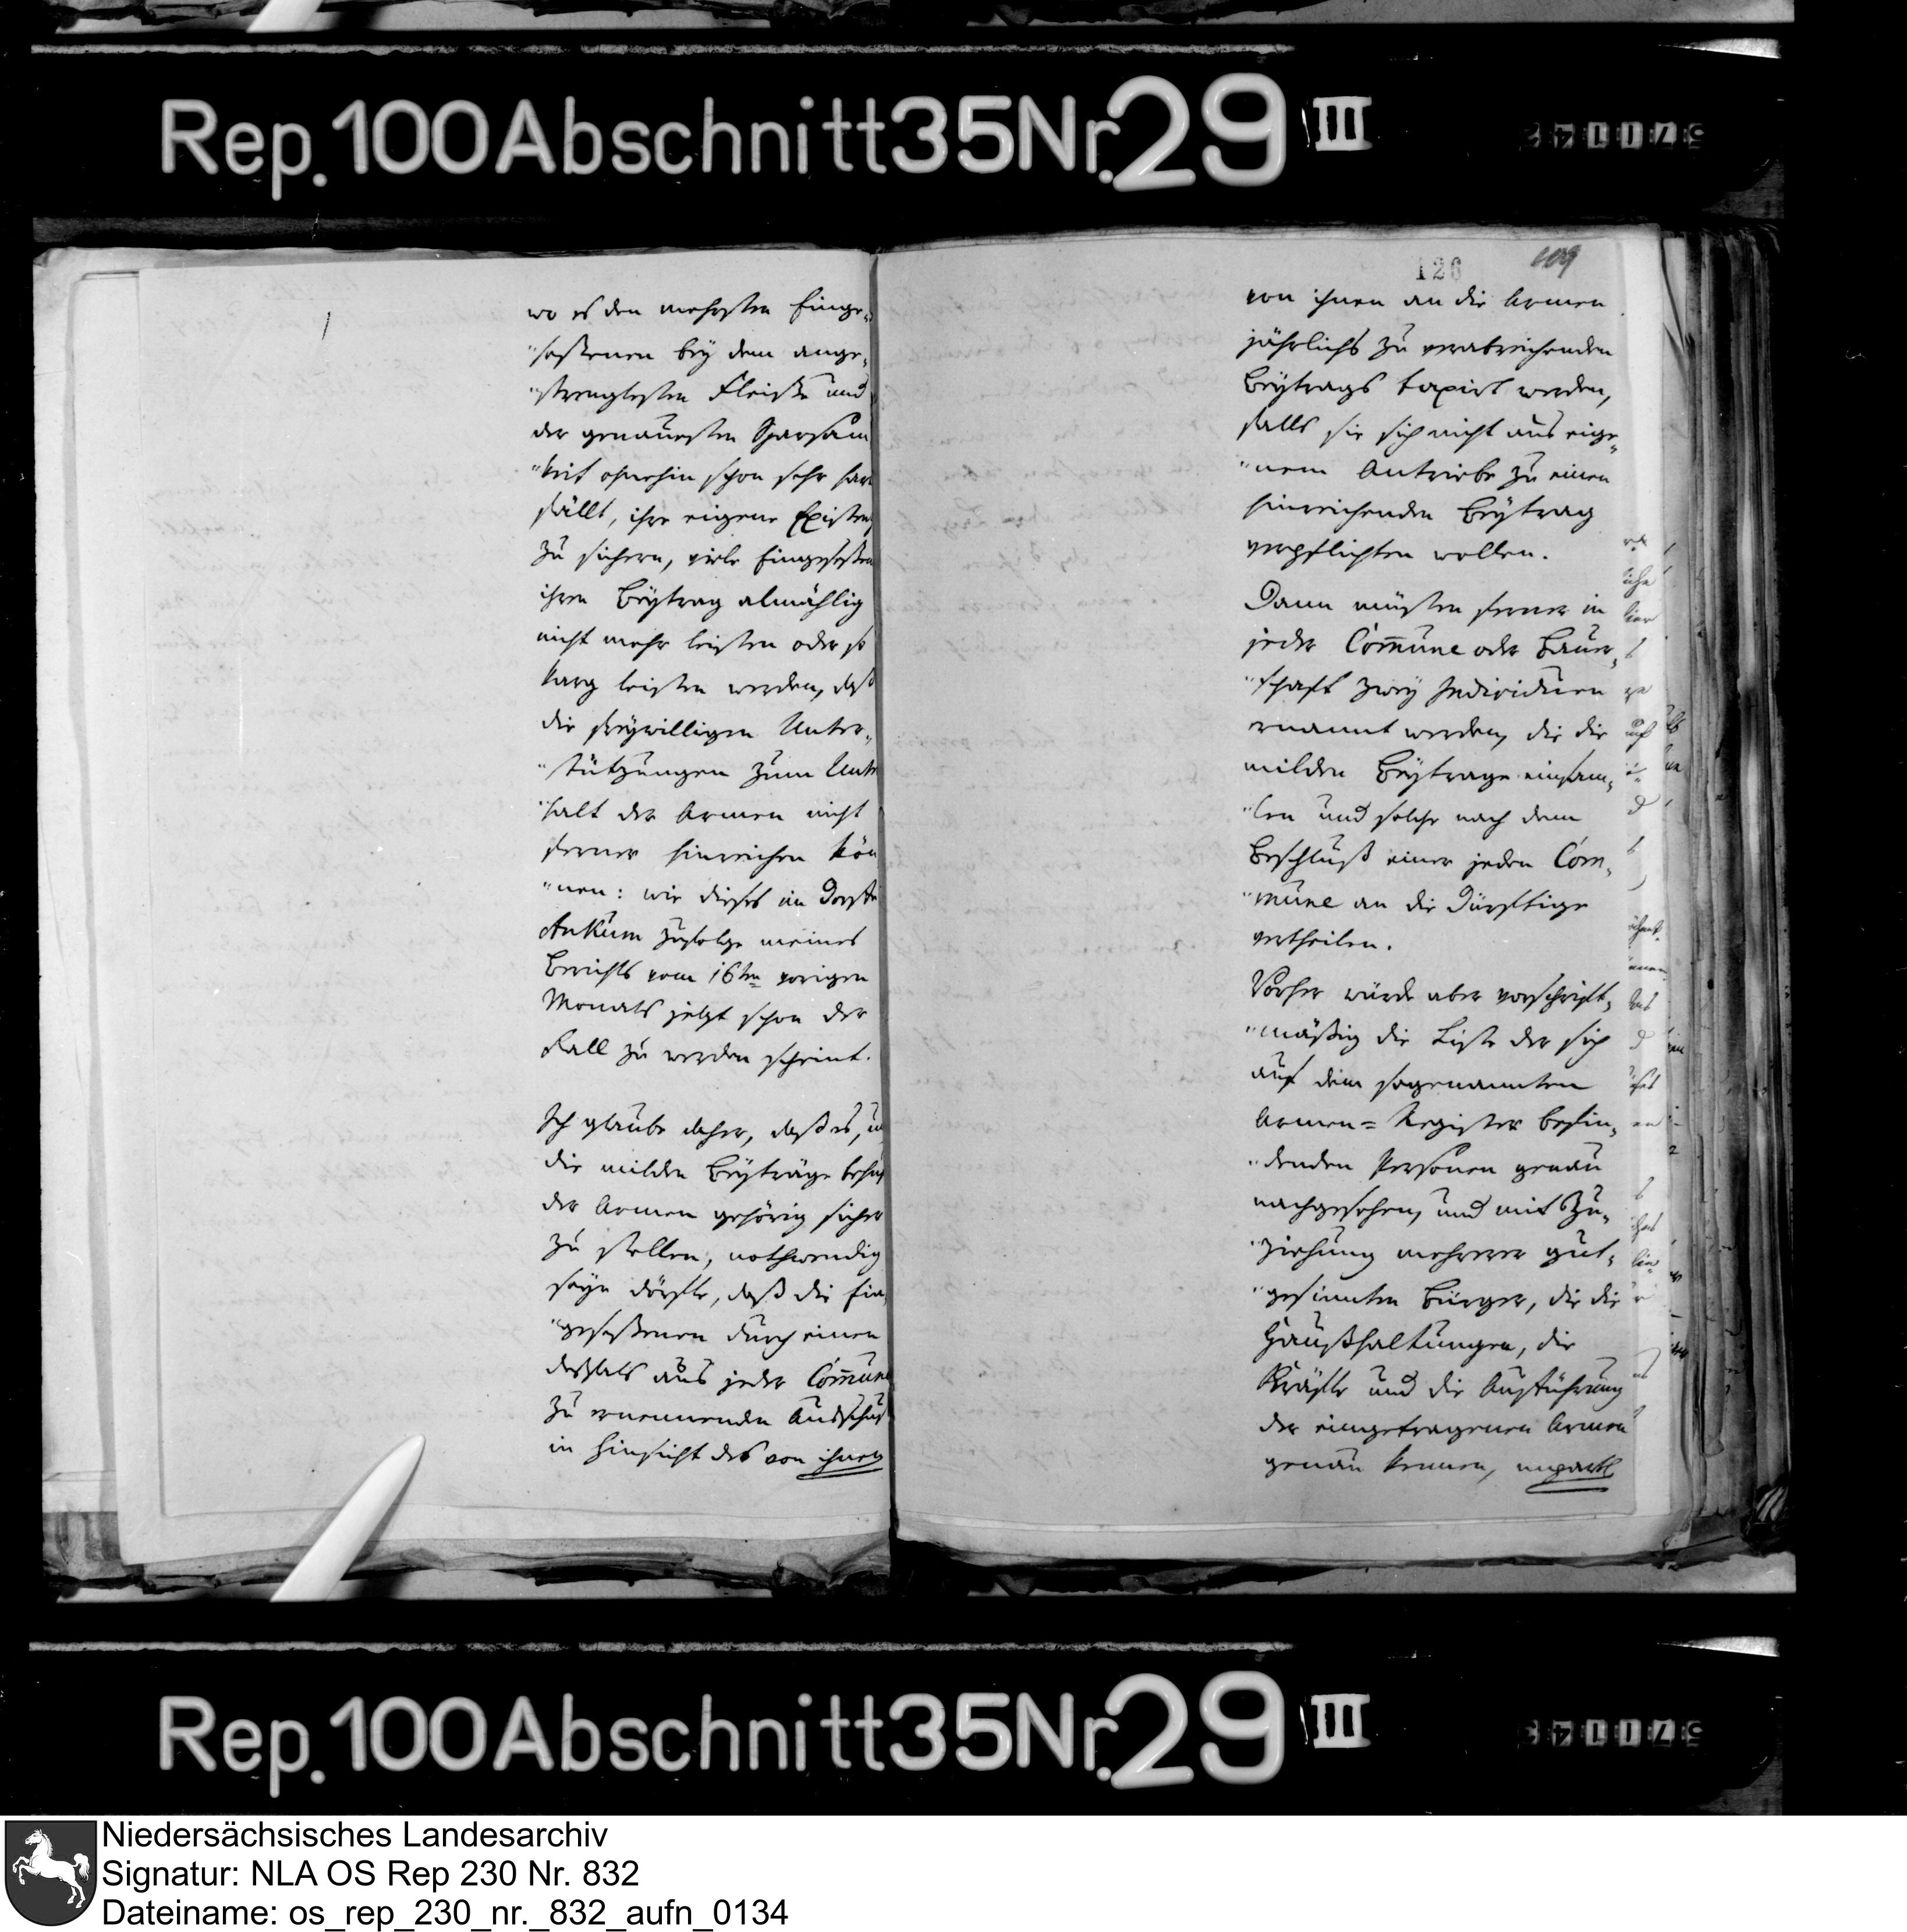 Rep. 100 Abschnitt 35 Nr. 29 III
wo es den mehrsten Einge„
"seßenen bey dem ange„
"strengtesten Fleiße und
der genauesten Sparsam
"keit ohnehin schon sehr har
fällt, ihre eigene Existen
zu sichern, viele Eingeseßen
ihren Beytrag almählig
nicht mehr leisten oder so
karg leisten werden, daß
die freywilligen Unter„
"stützungen zum Unte
"halt der Armen nicht
ferner hinreichen kön
"nen: wie dieses im Dorfe
Ankum zufolge meines
Berichts vom 16ten vorigen
Monats jetzt schon der
Fall zu werden scheint.
Ich glaube daher, daß es, u
die milden Beyträge behuf
der Armen gehörig sicher
zu stellen, nothwendig
seyn dörfte, daß die Ein„
"geseßenen durch einen
deßfals aus jeder Com̅une
zu ernennenden Ausschuß
in Hinsicht des von ihnen
126
109
von ihnen an die Armen
jährlichs zu verabreichenden
Beytrags taxirt werden,
falls sie sich nicht aus eige„
"nem Antriebe zu einen
hinreichenden Beytrag
verpflichten wollen.
Dann müsten ferner in
jeder Com̅une oder Bauer„
"schaft zwey Individuen
ernannt werden, die die
milden Beytrage einsam„
"len und solche nach dem
Beschluß einer jeden Com„
"mune an die Dürftige
vertheilen.
Vorher würde aber vorschrift„
"mäßig die Liste der sich
auf dem sogenannten
Armen = Register befin„
"denden Personen genau
nachgesehen, und mit Zu„
"ziehung mehrerer gut„
"gesinnten Bürger, die die
Haußhaltungen, die
Kräfte und die Aufführung
der eingetragenen Armen
genau kennen, unparth
Rep. 100 Abschnitt 35 Nr. 29 III
Niedersächsisches Landesarchiv
Signatur: NLA OS Rep 230 Nr. 832
Dateiname: os_rep_230_nr._832_aufn_0134